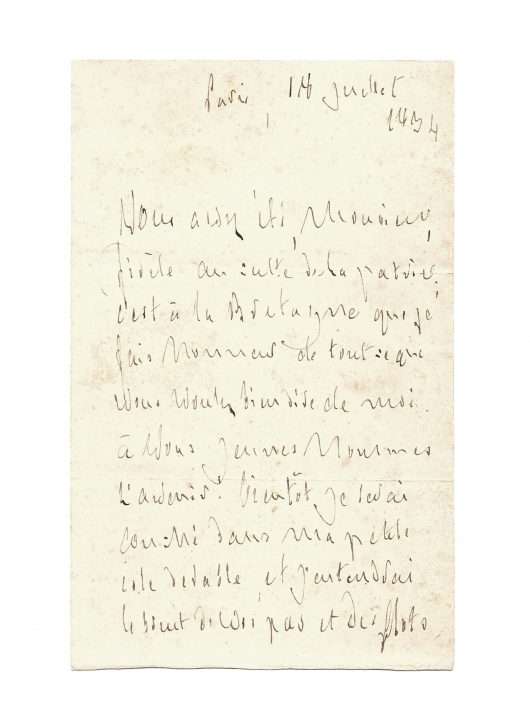 Paris, 18 juillet
1834
Vous avez été, Monsieur,
fidèle au culte de la patrie,
c'est à la Bretagne que je
fais honneur de tout ce que
vous voulez bien dire de moi.
à vous jeunes hommes
l'avenir! bientôt je serai
couché dans ma petite
isle de sable, et j'entendrai
le bruit de vos pas et des flots